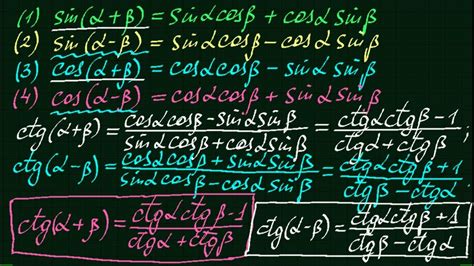 (1) sin(α+β) = sinαcosβ + cosα sinβ
(2) sin(α-β) = sinαcosβ - cosα sinβ
(3) cos(α+β) = cosαcosβ - sinα sinβ
(4) cos(α-β) = cosαcosβ + sinα sinβ
ctg(α+β) = (cosαcosβ - sinα sinβ)/(sinαcosβ + cosα sinβ) = (ctgα ctgβ - 1)/(ctgα + ctgβ)
ctg(α-β) = (cosαcosβ + sinα sinβ)/(sinαcosβ - cosα sinβ) = (ctgα ctgβ + 1)/(ctgβ - ctgα)
ctg(α+β) = (ctgα ctgβ - 1)/(ctgα + ctgβ) ctg(α-β) = (ctgα ctgβ + 1)/(ctgβ - ctgα)